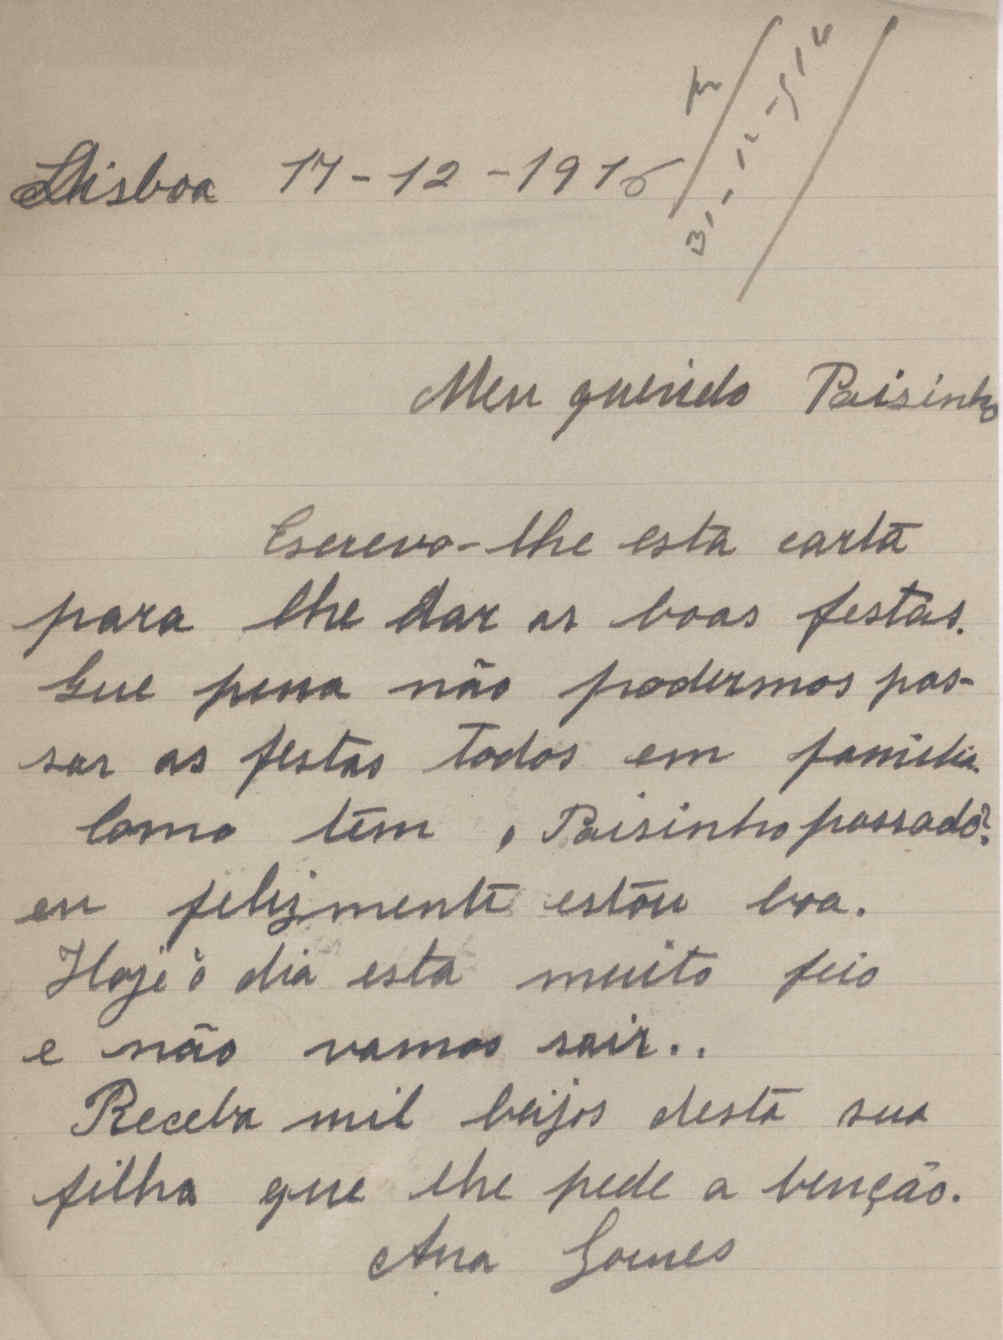 Lisboa 17-12-1915
Meu querido Paisinho
Escrevo-lhe esta carta
para lhe dar as boas festas.
Que pena não podermos pas-
sar as festas todos em familia.
Como tem o Paisinho passado?
eu felizmente estou boa.
Hoje o dia esta muito feio
e não vamos sair..
Receba mil beijos desta sua
filha que lhe pede a benção.
Ana Gomes